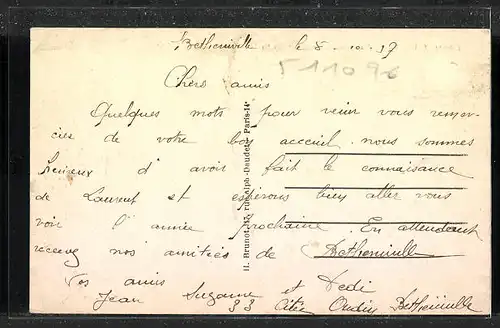 Betheniville le 8-10-37
511096
Chers amis
Quelques mots pour venir vous remer-
cier de votre bon acceuil nous sommes
heureux d'avoir fait le connaisance
de Laurent et espérons bien aller vous
voir l'année prochaine. En attendant
recevez nos amitiés de Betheniville
Vos amis
Jean Suzanne et Dedi
33 Citée Oudin Betheniville
H. Brunot, 17, rue Alph-Daudet - Paris-14e